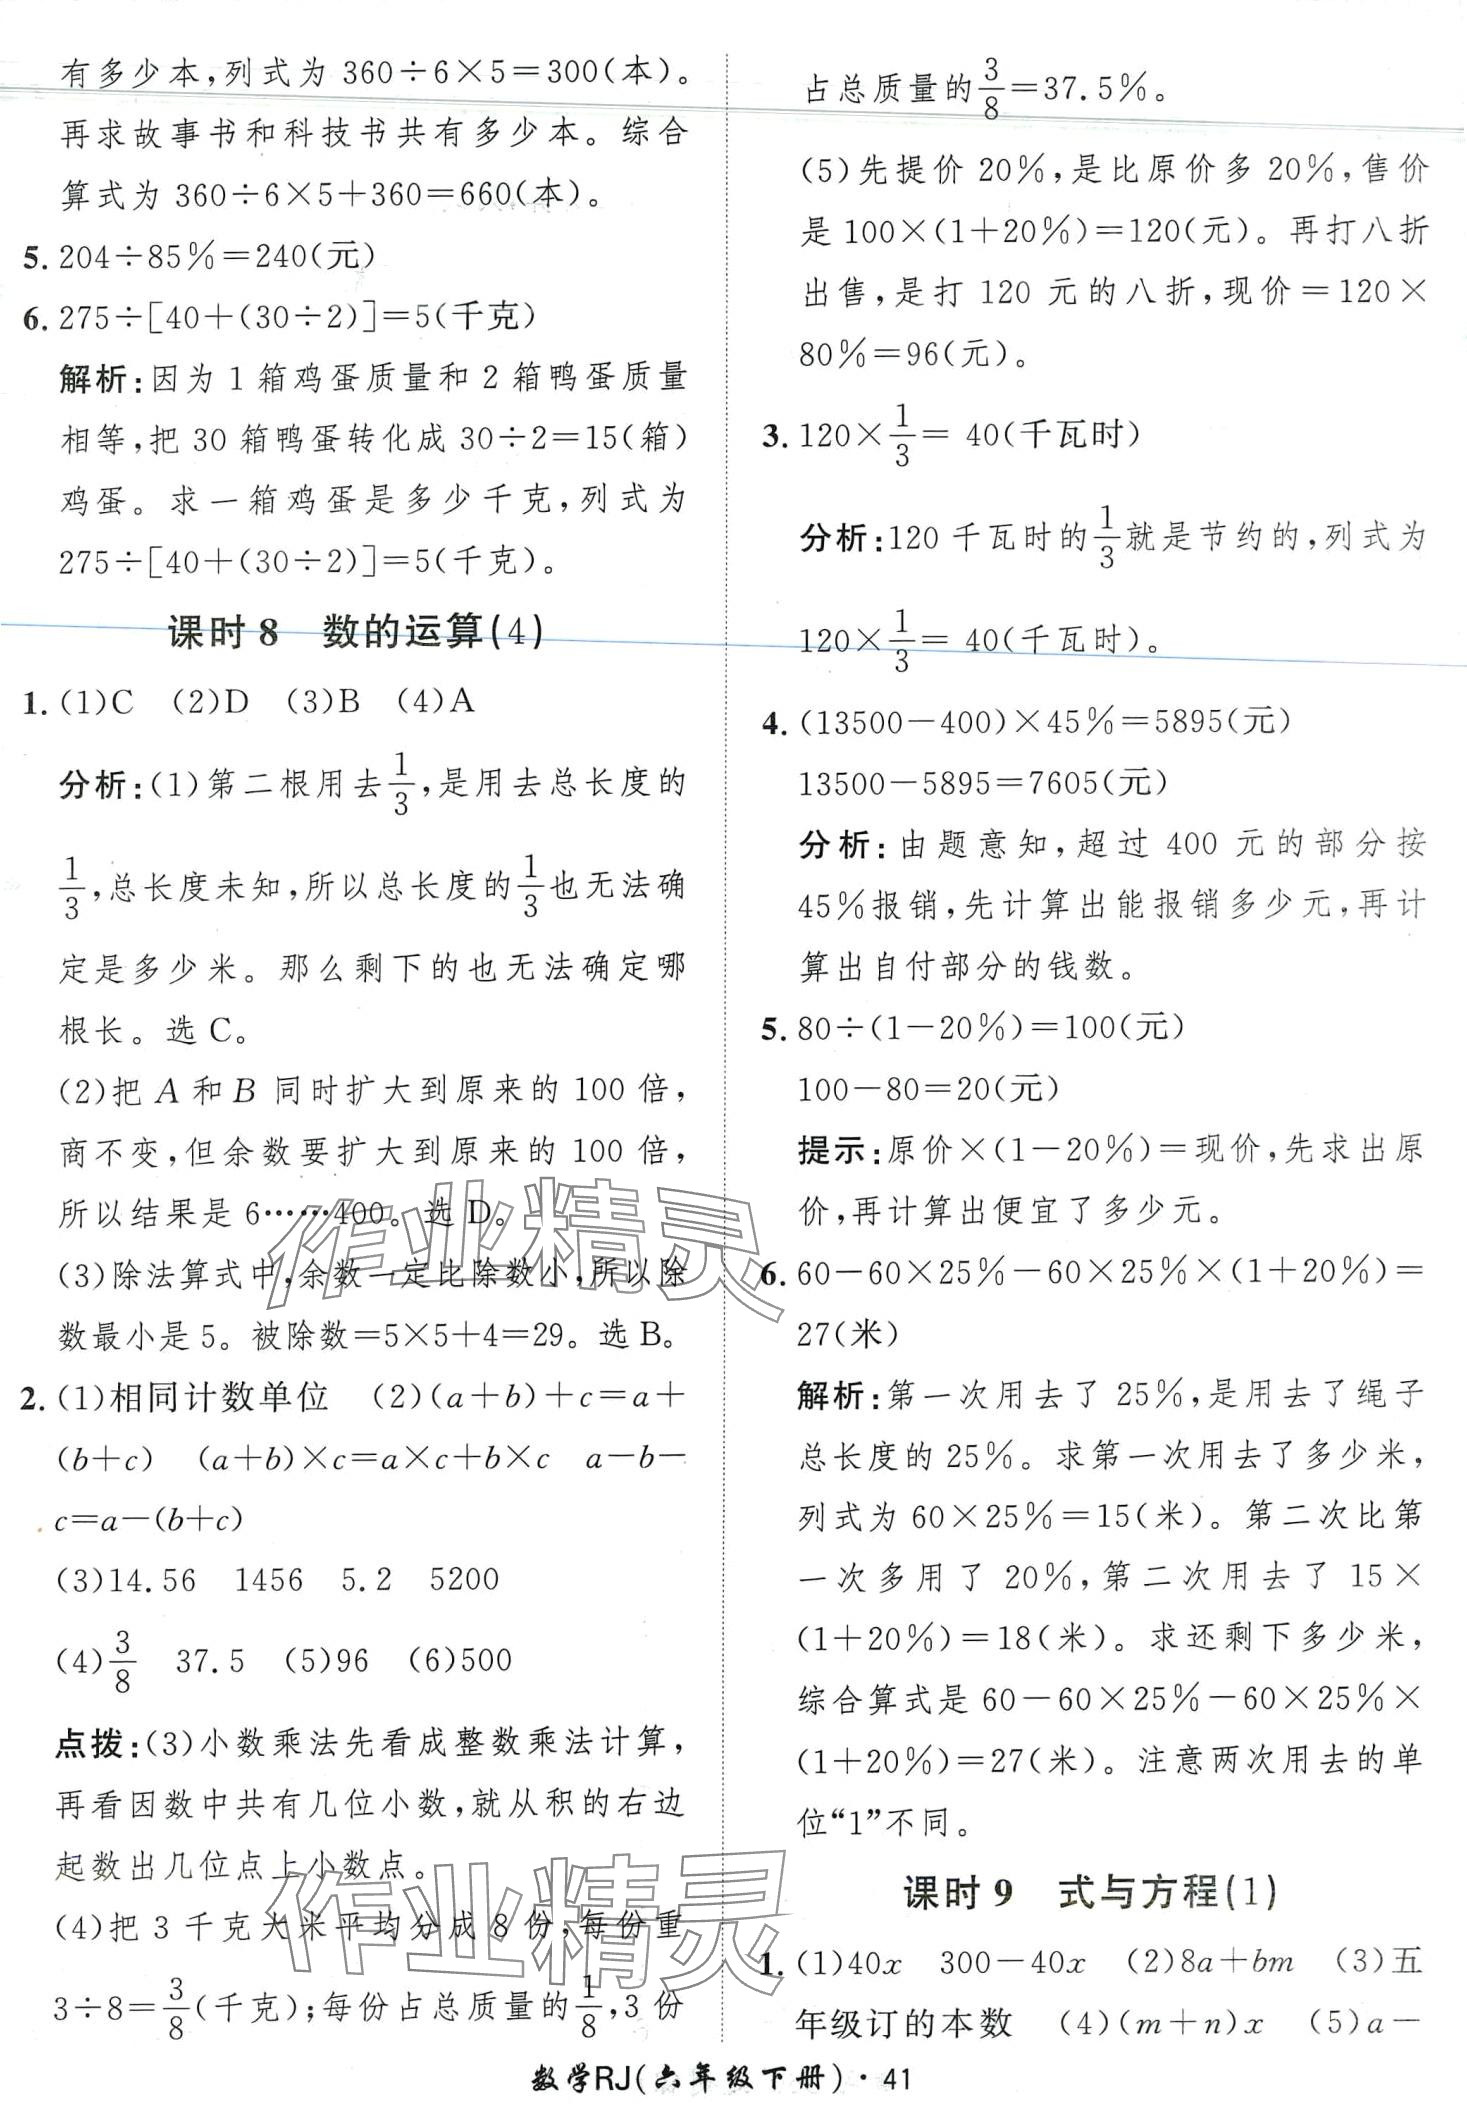 有多少本,列式为 360÷6×5=300(本)。
再求故事书和科技书共有多少本。综合
算式为 360÷6×5+360=660(本)。
5. 204÷85%=240(元)
6. 275÷[40+(30÷2)]=5(千克)
解析:因为 1 箱鸡蛋质量和 2 箱鸭蛋质量
相等,把 30 箱鸭蛋转化成 30÷2=15(箱)
鸡蛋。求一箱鸡蛋是多少千克,列式为
275÷[40+(30÷2)]=5(千克)。
课时 8 数的运算(4)
1. (1)C (2)D (3)B (4)A
分析:(1)第二根用去1/3,是用去总长度的
1/3,总长度未知,所以总长度的1/3也无法确
定是多少米。那么剩下的也无法确定哪
根长。选 C。
(2)把 A 和 B 同时扩大到原来的 100 倍,
商不变,但余数要扩大到原来的 100 倍,
所以结果是 6……400。选 D。
(3)除法算式中,余数一定比除数小,所以除
数最小是 5。被除数=5×5+4=29。选 B。
2. (1)相同计数单位 (2)(a+b)+c=a+
(b+c) (a+b)×c=a×c+b×c a-b-
c=a-(b+c)
(3)14.56 1456 5.2 5200
(4)3/8 37.5 (5)96 (6)500
点拨:(3)小数乘法先看成整数乘法计算,
再看因数中共有几位小数,就从积的右边
起数出几位点上小数点。
(4)把 3 千克大米平均分成 8 份,每份重
3÷8=3/8(千克);每份占总质量的1/8,3 份
占总质量的3/8=37.5%。
(5)先提价 20%,是比原价多 20%,售价
是 100×(1+20%)=120(元)。再打八折
出售,是打 120 元的八折,现价=120×
80%=96(元)。
3. 120×1/3= 40(千瓦时)
分析:120 千瓦时的1/3就是节约的,列式为
120×1/3= 40(千瓦时)。
4. (13500-400)×45%=5895(元)
13500-5895=7605(元)
分析:由题意知,超过 400 元的部分按
45%报销,先计算出能报销多少元,再计
算出自付部分的钱数。
5. 80÷(1-20%)=100(元)
100-80=20(元)
提示:原价×(1-20%)=现价,先求出原
价,再计算出便宜了多少元。
6. 60-60×25%-60×25%×(1+20%)=
27(米)
解析:第一次用去了 25%,是用去了绳子
总长度的 25%。求第一次用去了多少米,
列式为 60×25%=15(米)。第二次比第
一次多用了 20%,第二次用去了 15×
(1+20%)=18(米)。求还剩下多少米,
综合算式是 60-60×25%-60×25%×
(1+20%)=27(米)。注意两次用去的单
位“1”不同。
课时 9 式与方程(1)
1. (1)40x 300-40x (2)8a+bm (3)五
年级订的本数 (4)(m+n)x (5)a-
数学RJ(六年级下册)·41
作业精灵
作业精灵